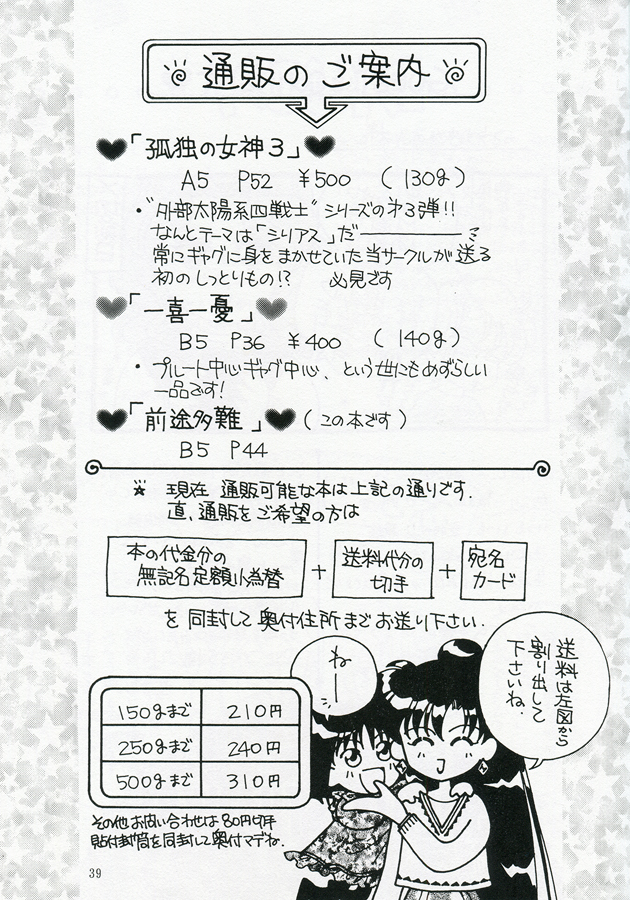 通販のご案内
「孤独の女神3」
A5 P52 ¥500 (130g)
・"外部太陽系四戦士"シリーズの第3弾!!
なんとテーマは「シリアス」だ――
常にギャグに身をまかせていた当サークルが送る
初のしっとりもの!? 必見です
「一喜一憂」
B5 P36 ¥400 (140g)
・プルート中心ギャグ中心、という世にもめずらしい
一品です!
「前途多難」(この本です)
B5 P44
☆ 現在 通販可能な本は上記の通りです.
直、通販をご希望の方は
本の代金分の
無記名定額小為替
+
送料代分の
切手
+
宛名
カード
を同封して奥付住所までお送り下さい.
送料は左図から
割り出して
下さいね.
ねー
150gまで 210円
250gまで 240円
500gまで 310円
その他お問い合わせは80円切手
貼付封筒を同封して奥付マデね.
39